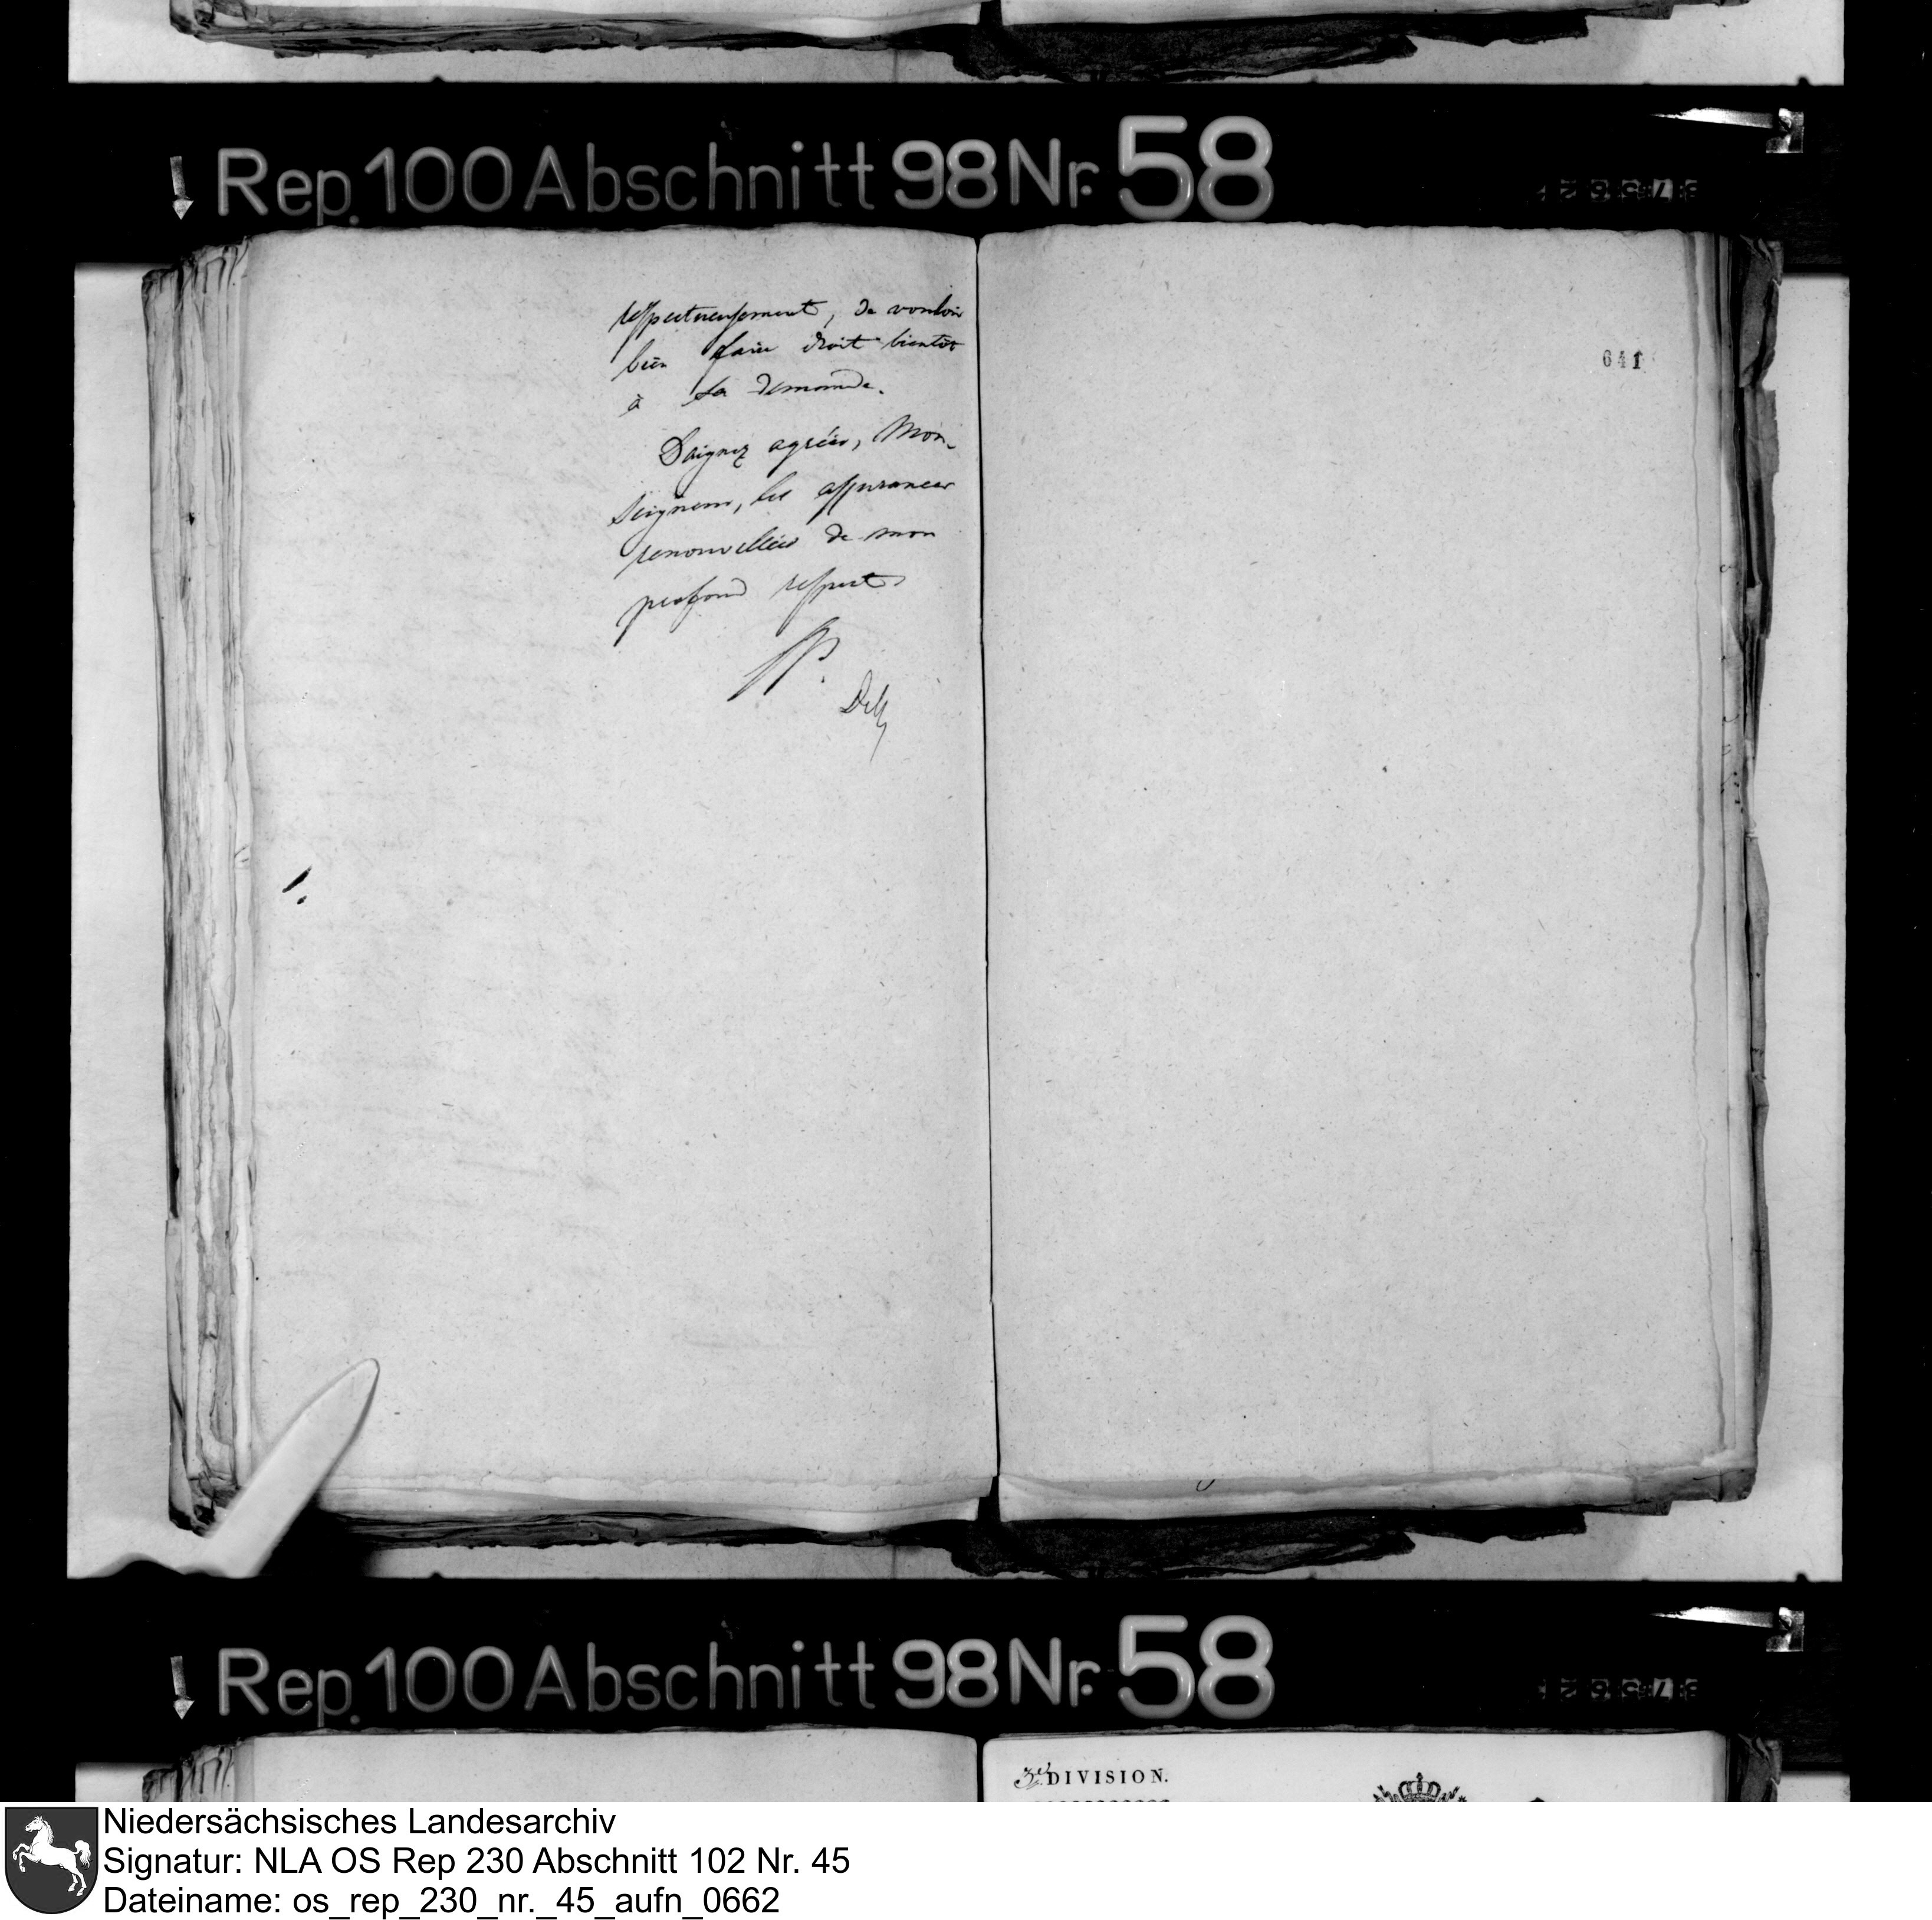 Rep. 100 Abschnitt 98 Nr. 58
respectueusement, de vouloir
bien faire droit bientôt
à sa demande.
Daignez agréer, Mon-
seigneur, les assurances
renouvellées de mon
profond respect
641
Rep. 100 Abschnitt 98 Nr. 58
3e DIVISION.
Niedersächsisches Landesarchiv
Signatur: NLA OS Rep 230 Abschnitt 102 Nr. 45
Dateiname: os_rep_230_nr._45_aufn_0662